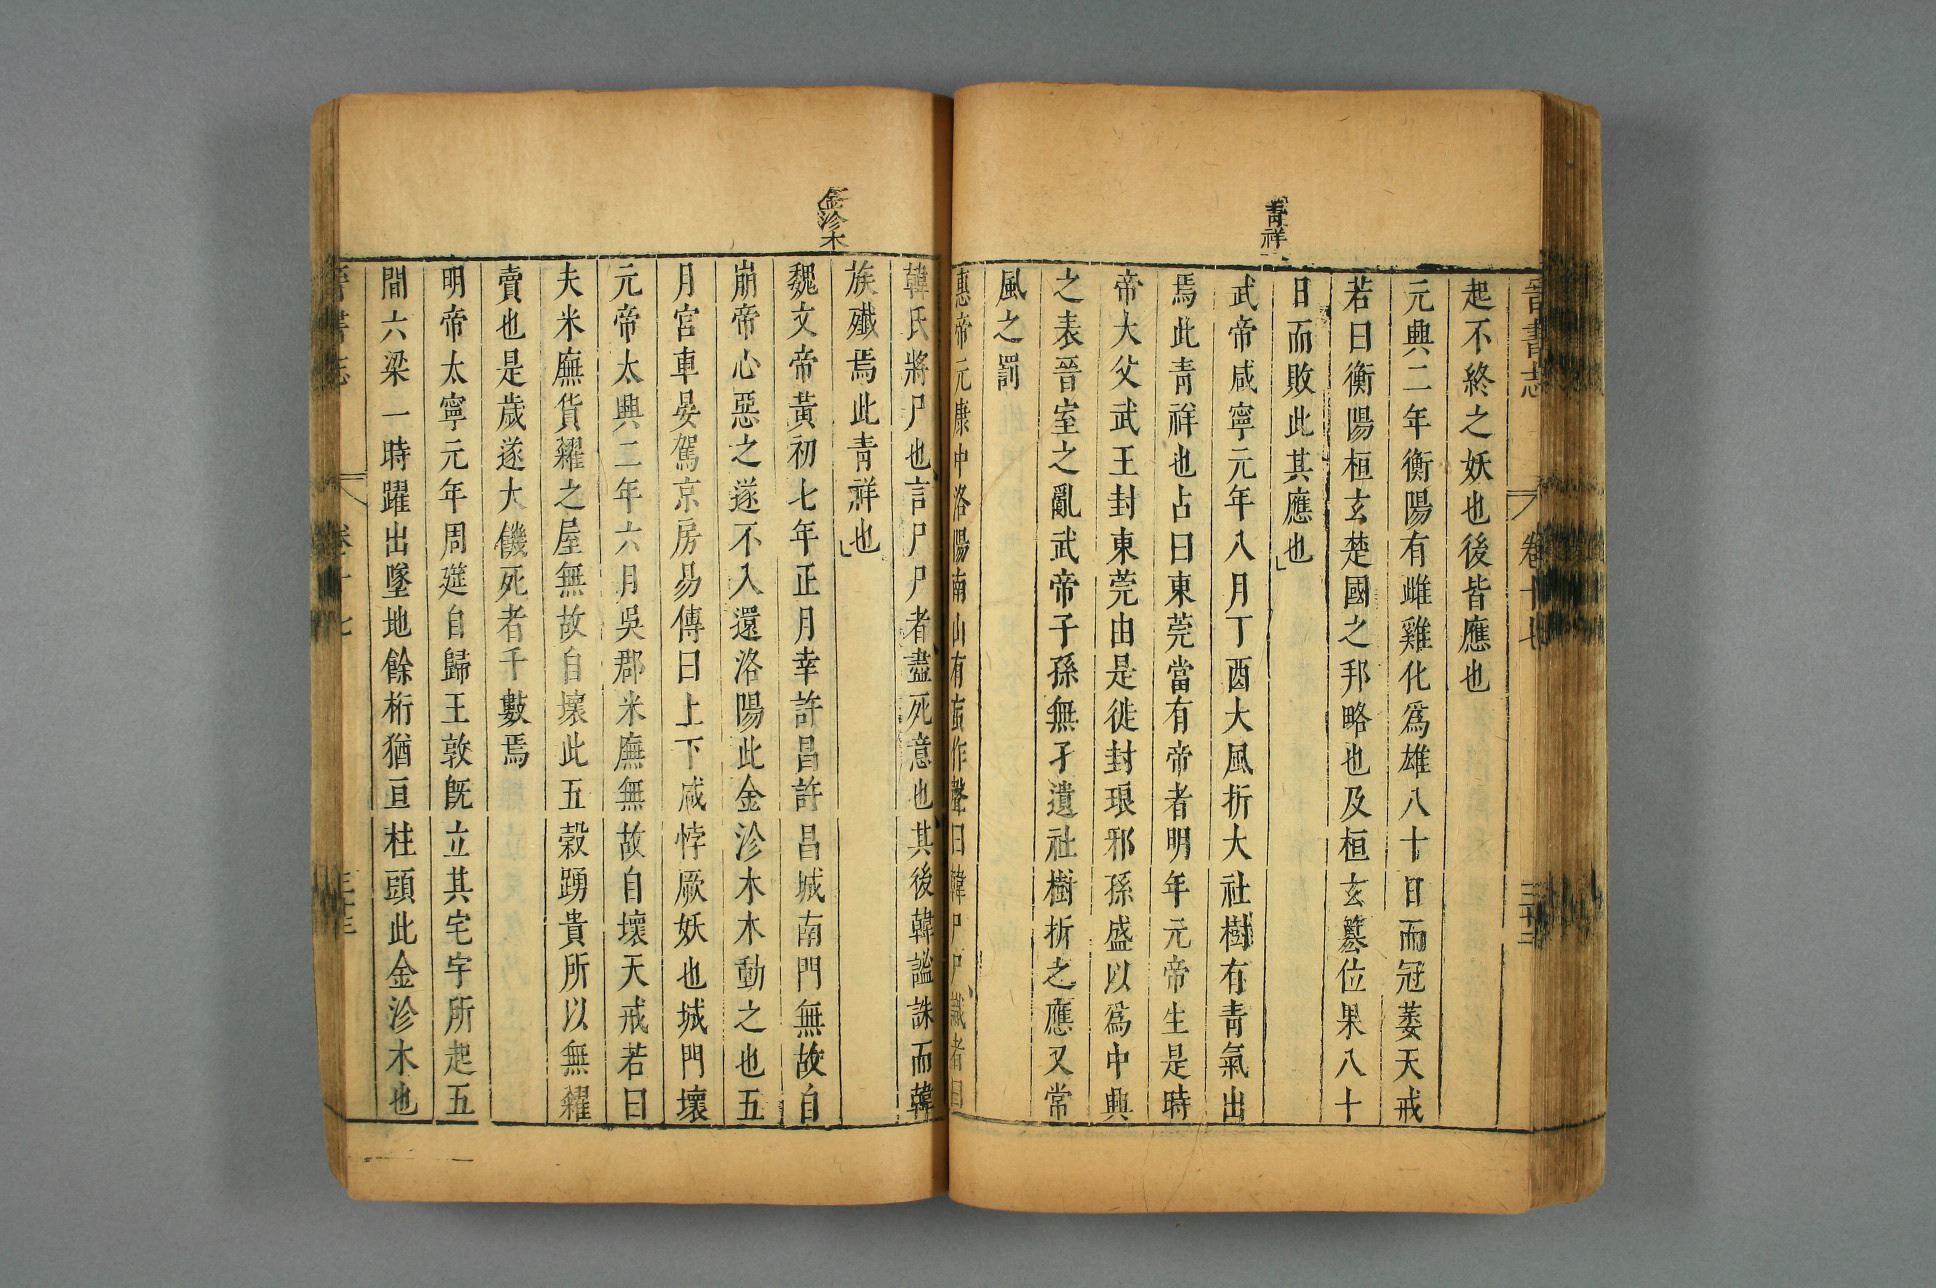 晉書志 卷十七 三十二
青祥
起不終之妖也後皆應也
元興二年衡陽有雌雞化爲雄八十日而冠萎天戒
若曰衡陽桓玄楚國之邦略也及桓玄簒位果八十
日而敗此其應也
武帝咸寧元年八月丁酉大風折大社樹有青氣出
焉此青祥也占曰東莞當有帝者明年元帝生是時
帝大父武王封東莞由是徙封琅邪孫盛以爲中興
之表晉室之亂武帝子孫無孑遺社樹折之應又常
風之罰
惠帝元康中洛陽南山有䖟作聲曰韓尸尸識者曰
韓氏將尸也言尸尸者盡死意也其後韓謐誅而韓
族殲焉此青祥也
金沴木
魏文帝黃初七年正月幸許昌許昌城南門無故自
崩帝心惡之遂不入還洛陽此金沴木木動之也五
月宮車晏駕京房易傳曰上下咸悖厥妖也城門壞
元帝太興二年六月吳郡米廡無故自壞天戒若曰
夫米廡貨糴之屋無故自壞此五穀踴貴所以無糴
賣也是歲遂大饑死者千數焉
明帝太寧元年周筵自歸王敦旣立其宅宇所起五
間六梁一時躍出墜地餘桁猶亘柱頭此金沴木也
晉書志 卷十七 三十三